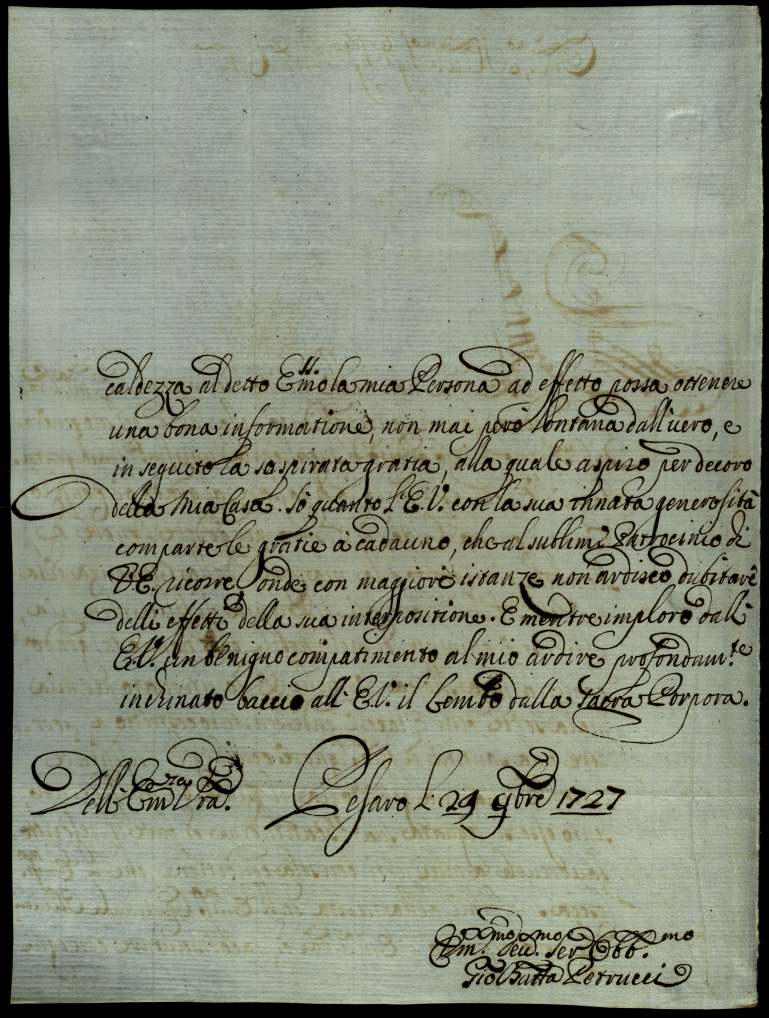 caldezza al detto Em:o la mia Persona ad effetto possa ottenere
una bona informatione, non mai però lontana dall'uero, e
in seguito la sospirata gratia, alla quale aspiro per decoro
della Mia Casa. Sò quanto l'E.V. con la sua innata generosità
comparte le gratie à cadauno, che al sublime Patrocinio di
V.E. ricorre onde con maggiore istanze non ardisco dubitare
delli effetti della sua interpositione. E mentre imploro dall'
E.V. un benigno compatimento al mio ardire profondam.te
inchinato baccio all'E.V. il lembo dalla Sacra Porpora.
Dell'Em.za V.ra
Pesaro l: 29 9bre 1727
Dev. Ser Obb.mo
Gio Batta Petrucci